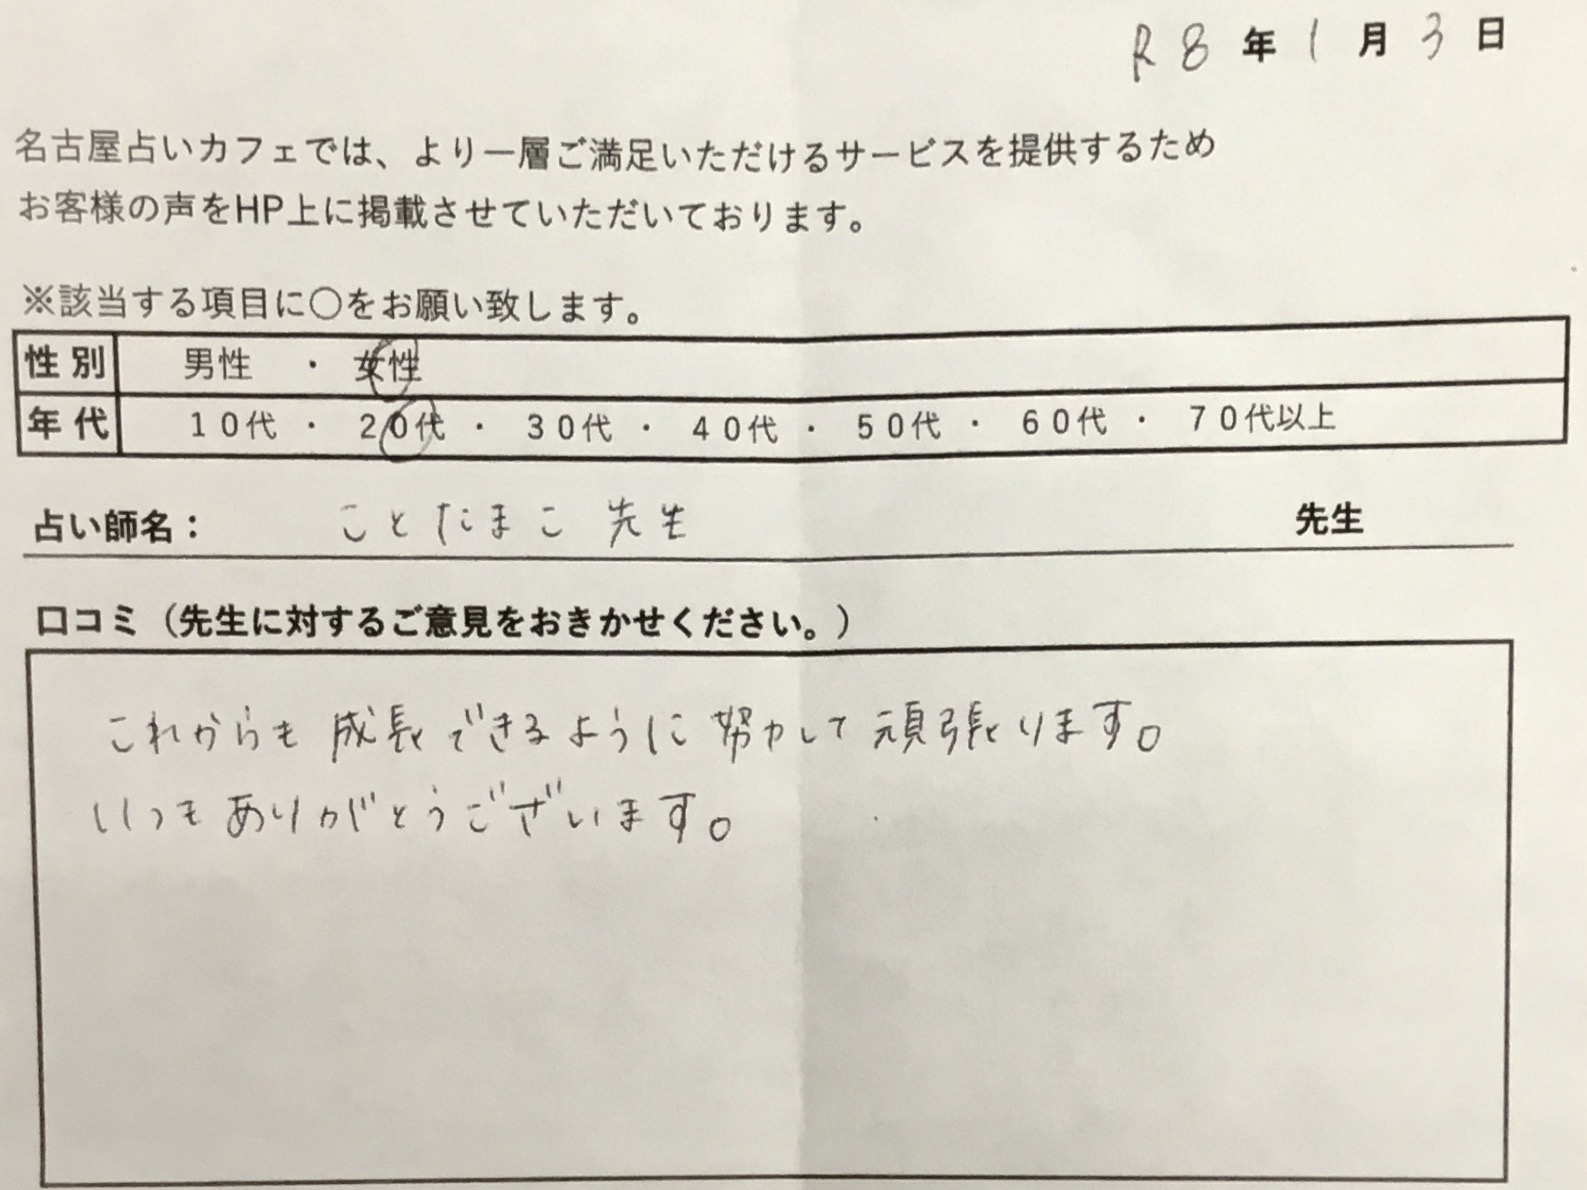 R8年1月3日
名古屋占いカフェでは、より一層ご満足いただけるサービスを提供するため
お客様の声をHP上に掲載させていただいております。
※該当する項目に○をお願い致します。
性別 男性 ・ 女性
年代 10代 ・ 20代 ・ 30代 ・ 40代 ・ 50代 ・ 60代 ・ 70代以上
占い師名： ことだまこ 先生 先生
口コミ（先生に対するご意見をおきかせください。）
これからも成長できるように努力して頑張ります。
いつもありがとうございます。